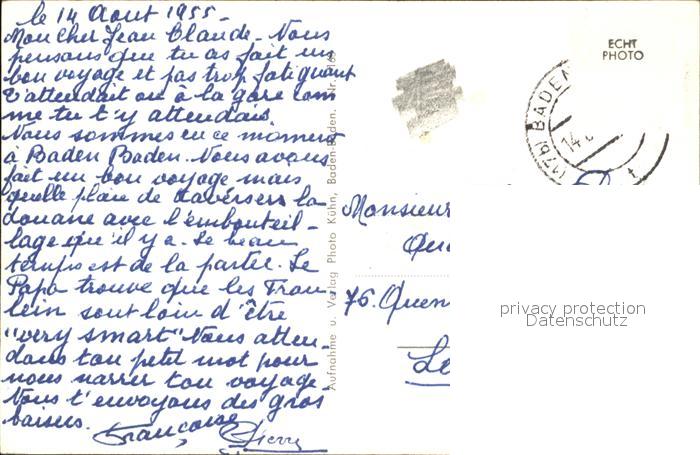 le 14 Aout 1955 -
Mon cher Jean Claude. Nous
pensons que tu as fait un
bon voyage et pas trop fatiguant
t'attendait on à la gare com
me tu t'y attendais.
Nous sommes en ce moment
à Baden Baden. Nous avons
fait un bon voyage mais
quelle plaie de traversers la
douane avec l'embouteil-
lage qu'il y a. Le beau
temps est de la partie. Le
Papa trouve que les Frau
lein sont loin d'être
"very smart" Nous atten-
dons ton petit mot pour
nous narrer ton voyage.
Nous t'envoyons des gros
baisers. Françoise Pierre
Aufnahme u. Verlag Photo Kühn, Baden-Baden.
ECHT
PHOTO
(17b) BADEN
14
Monsieur
76. Quen
Le
privacy protection
Datenschutz